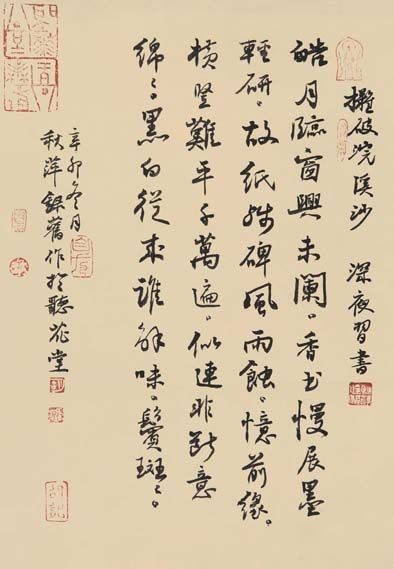 攤破浣溪沙 深夜習書
皓月臨窗興未闌。香書慢展墨
輕研。故紙殘碑風雨蝕。憶前緣。
橫豎難平千萬遍。似連非斷意
綿々。黑白從來誰解味。鬢斑々。
辛卯冬月
秋萍録舊作於聽花堂